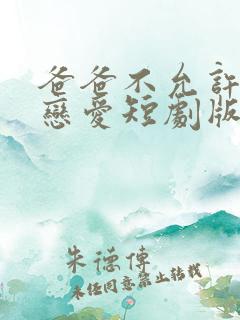 爸爸不允許
戀愛短劇版
朱德傳
未经同意禁止转载